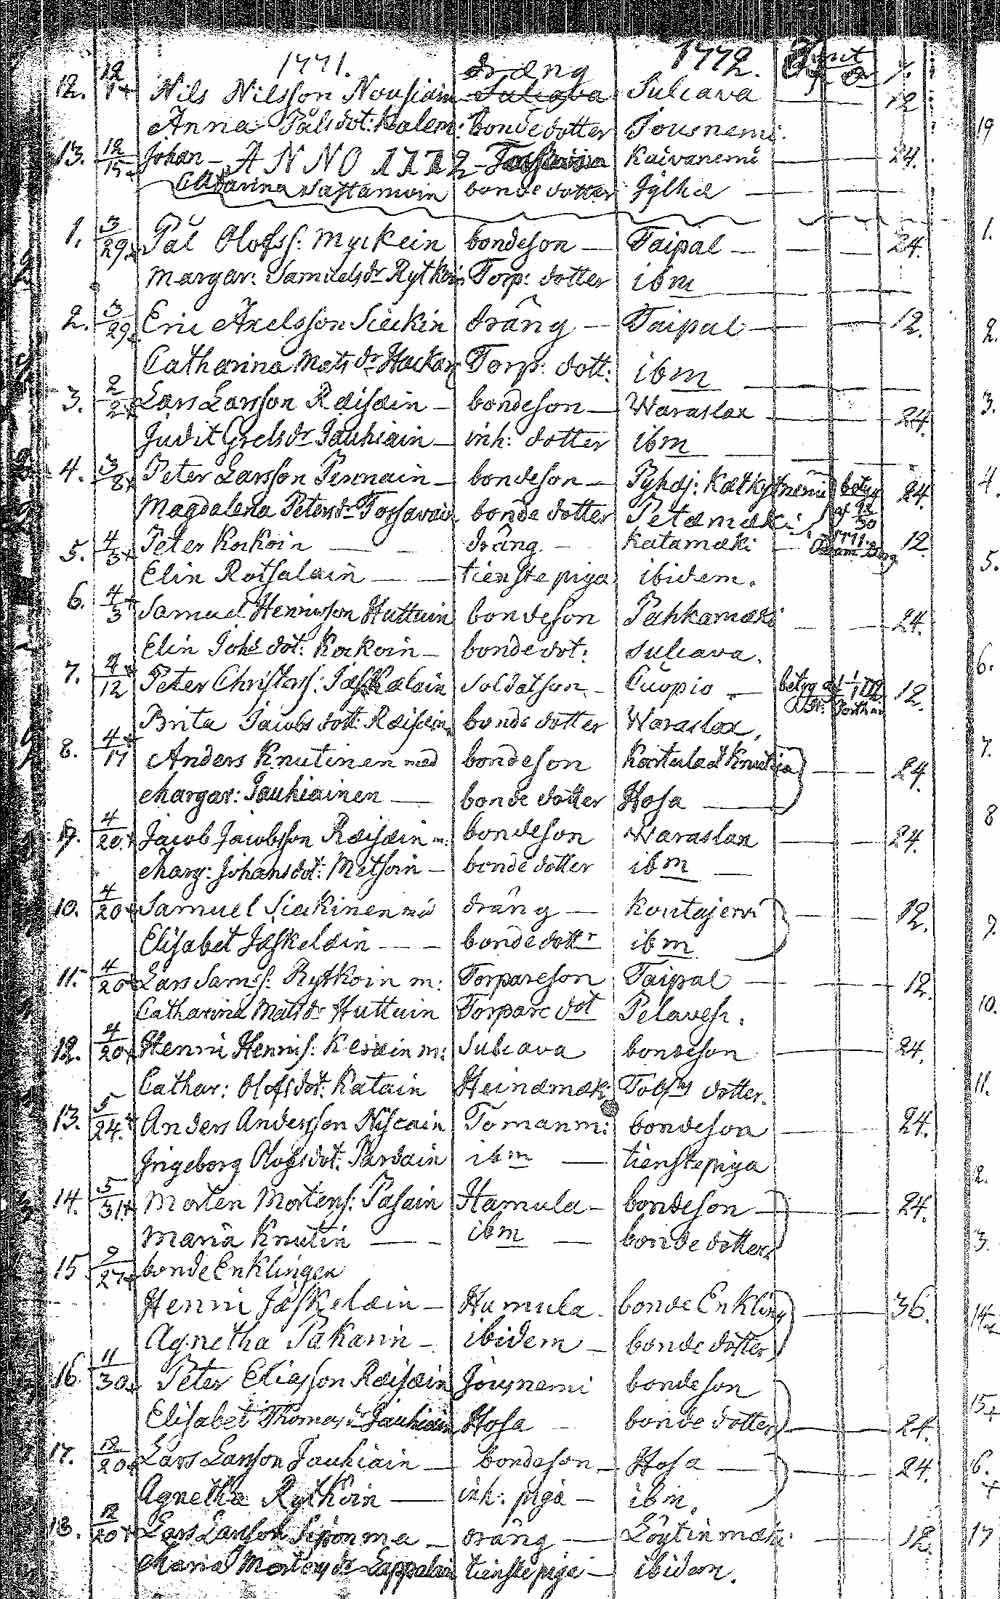 1771. 1772.
12. 12/1 Nils Nilsson Nousiain dräng Sulcava Sulcava 12
Anna Påls dot: Kalem: bondedotter Jousnemi.
13. 12/ Johan – ANNO 1772 Kaivanemi 24.
Catharina Sastamoin bondedotter Jylhä
1. 3/29 Pål Olofss: Myckein bondeson – Taipal – 24.
Margar: Samuelsdr Rytkön Torp: dotter ibm
2. 3/29 Eric Axelsson Sieckin dräng – Taipal – 12.
Catharina Mats dr Hackar Torp: dott: ibm
3. 2/2 Lars Larsson Räisäin – bondeson – Waraslax 24.
Judit Grels dr Jauhiain – inh: dotter ibm
4. 3/8 Peter Larsson Pennain – bondeson – Pyhäj: Kätkytnemi betyg 24.
Magdalena Petersdr Torfvain bonde dotter Petämäki
5. 4/3 Peter Kokoin – dräng – Katamäki – 12.
Elin Rotsalain – tienste piga ibidem.
6. 4/3 Samuel Henricsson Huttuin bondeson Pahkamäki – 24.
Elin Johs dot: Kokoin – bondedot: Sulcava.
7. 4/12 Peter Christerss: Jäskäläin Soldatson – Cuopio – betyg af 12.
Brita Jacobs dott: Räisäin bonde dotter Waraslax,
8. 4/17 Anders Knutinen med bondeson 24.
Margar: Jauhiainen – bonde dotter Hosa –
9. 4/20 Jacob Jacobsson Räisäin m: bondeson Waraslax 24.
Marg: Johans dot: Metsoin – bonde dotter ibm –
10. 4/20 Samuel Sieckinen dräng – Koutajervi 12.
Elisabet Jäskeläin – bonde dottr ibm
11. 4/20 Lars Sams: Rytkoin m: Torpareson Taipal – 12.
Catharina Mats dr Huttuin Torpare dot Pelavesi.
12. 4/20 Henric Henrics: Keinäin m: Sulcava bondeson 24.
Cathar: Olofs dot: Katain Heinämäk: dotter.
13. 5/24 Anders Andersson Niscain Tomanm: bondeson 24.
Ingeborg Olofs dot: Pardain ibm – tienstepiga
14. 5/31 Morten Mortens: Pasain Hamula – bondeson – 24.
Maria Knutin – ibm – bonde dotter
15 9/27 bonde Enklingen
Henric Jäskeläin – Humula bonde Enkling 36.
Agnetha Pakarin – ibidem – bonde dotter
16. 11/30 Peter Eliasson Räisäin Jousnemi bondeson
Elisabet Thomas dr Jauhiain Hosa bonde dotter 24.
17. 12/20 Lars Larsson Jauhiain – bondeson – Hosa – 24.
Agnetha Rytkoin – inh: piga – ibm.
18. 12/20 Lars Larsson Siponma – dräng – Löytinmäki 12.
Maria Mortens dr Lappalain tienste piga – ibidem.